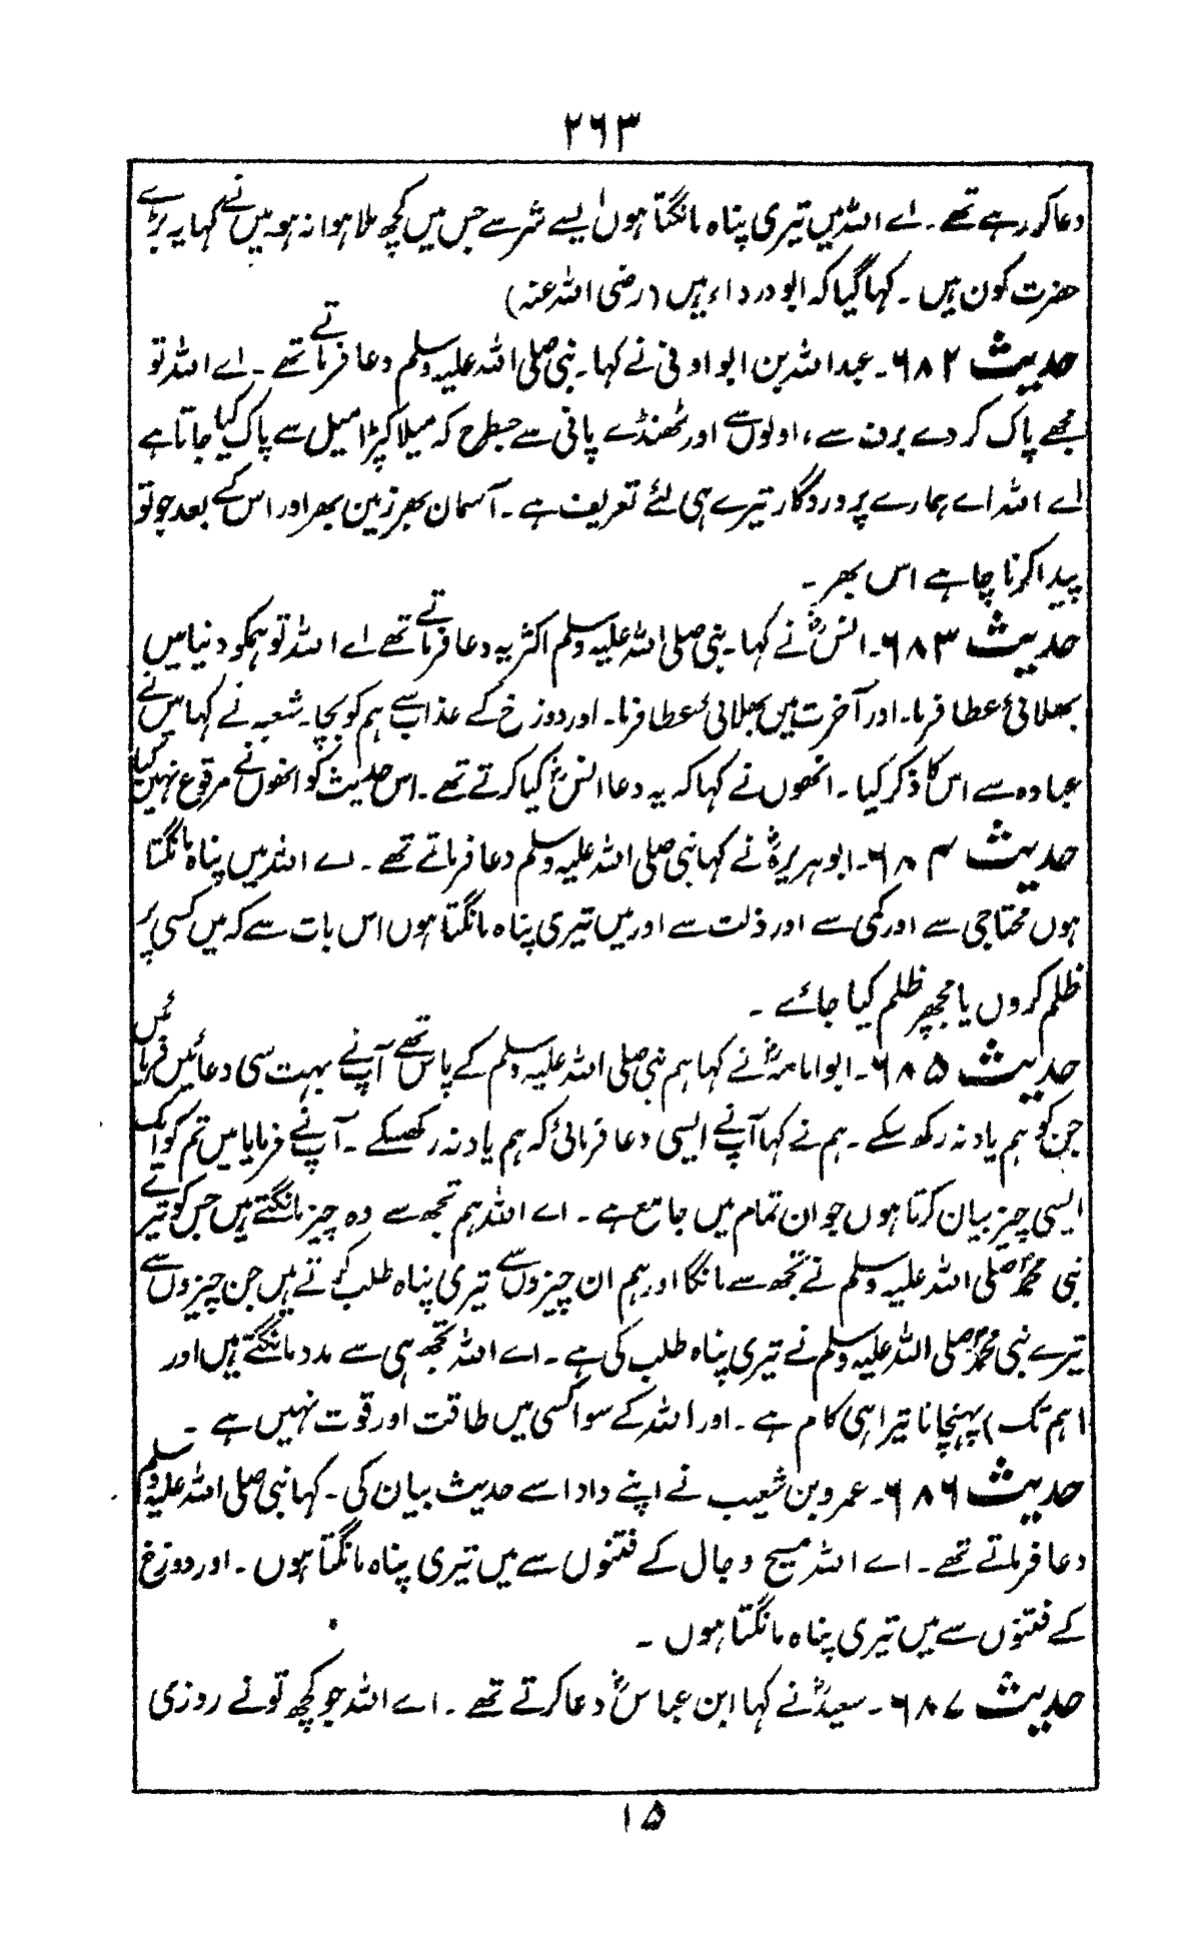 ۲۶۳
دعا کر رہے تھے۔ اے اللہ میں تیری پناہ مانگتا ہوں ایسے شر سے جس میں کچھ ملا ہوا نہ ہو میں نے کہا یہ بڑے
حضرت کون ہیں۔ کہا گیا کہ ابو درداء ہیں (رضی اللہ عنہ)
حدیث ۶۸۲۔ عبداللہ بن ابو اوفی نے کہا۔ نبی صلی اللہ علیہ وسلم دعا فرماتے تھے۔ اے اللہ تو
مجھے پاک کر دے برف سے، اولوں سے اور ٹھنڈے پانی سے جسطرح کہ میلا کپڑا میل سے پاک کیا جاتا ہے
اے اللہ اے ہمارے پروردگار تیرے ہی لئے تعریف ہے۔ آسمان بھر زمین بھر اور اس کے بعد جو تو
پیدا کرنا چاہے اس بھر۔
حدیث ۶۸۳۔ انسؓ نے کہا۔ نبی صلی اللہ علیہ وسلم اکثر یہ دعا فرماتے تھے اے اللہ تو ہمکو دنیا میں
بھلائی عطا فرما۔ اور آخرت میں بھلائی عطا فرما۔ اور دوزخ کے عذاب سے ہم کو بچا۔ شعبہ نے کہا میں نے
عبادہ سے اس کا ذکر کیا۔ انھوں نے کہا کہ یہ دعا انسؓ کیا کرتے تھے۔ اس حدیث کو انھوں نے مرفوع نہیں کیا
حدیث ۶۸۴۔ ابوہریرہؓ نے کہا نبی صلی اللہ علیہ وسلم دعا فرماتے تھے۔ اے اللہ میں پناہ مانگتا
ہوں محتاجی سے اور کمی سے اور ذلت سے اور میں تیری پناہ مانگتا ہوں اس بات سے کہ میں کسی پر
ظلم کروں یا مجھپر ظلم کیا جائے۔
حدیث ۶۸۵۔ ابوامامہؓ نے کہا ہم نبی صلی اللہ علیہ وسلم کے پاس تھے آپنے بہت سی دعائیں فرمائیں
جن کو ہم یاد نہ رکھ سکے۔ ہم نے کہا آپنے ایسی دعا فرمائی کہ ہم یاد نہ رکھسکے۔ آپنے فرمایا میں تم کو ایک
ایسی چیز بیان کرتا ہوں جو ان تمام میں جامع ہے۔ اے اللہ ہم تجھ سے وہ چیز مانگتے ہیں جس کو تیرے
نبی محمد صلی اللہ علیہ وسلم نے تجھ سے مانگا اور ہم ان چیزوں سے تیری پناہ طلب کرتے ہیں جن چیزوں سے
تیرے نبی محمد صلی اللہ علیہ وسلم نے تیری پناہ طلب کی ہے۔ اے اللہ تجھ ہی سے مدد مانگتے ہیں اور
(ہم تک) پہنچانا تیرا ہی کام ہے۔ اور اللہ کے سوا کسی میں طاقت اور قوت نہیں ہے۔
حدیث ۶۸۶۔ عمرو بن شعیب نے اپنے دادا سے حدیث بیان کی۔ کہا نبی صلی اللہ علیہ وسلم
دعا فرماتے تھے۔ اے اللہ مسیح دجال کے فتنوں سے میں تیری پناہ مانگتا ہوں۔ اور دوزخ
کے فتنوں سے میں تیری پناہ مانگتا ہوں۔
حدیث ۶۸۷۔ سعیدؓ نے کہا ابن عباسؓ دعا کرتے تھے۔ اے اللہ جو کچھ تو نے روزی
۱۵